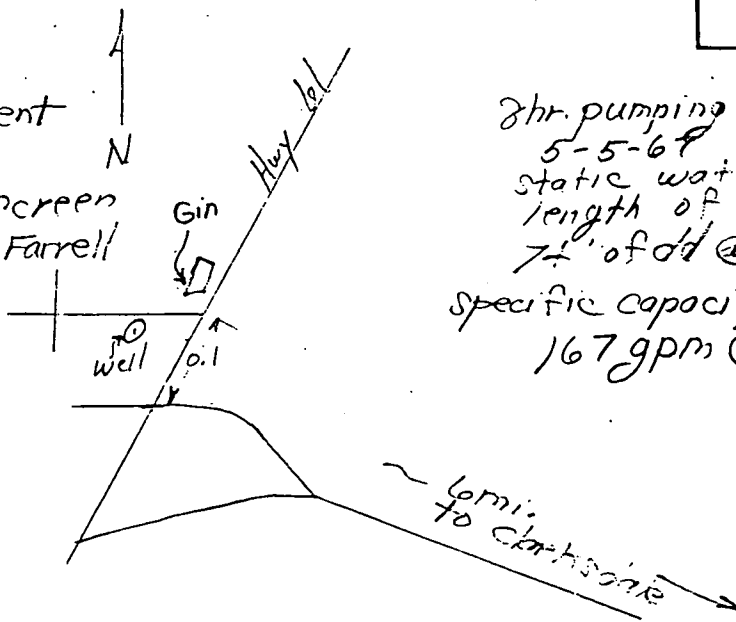 ent
N
creen
Farrell
Gin
Hwy 61
well
0.1
2hr. pumping
5-5-69
static wat
length of
7± ' of dd @
specific capaci
167 gpm (
~ 6mi.
to Clarksdale